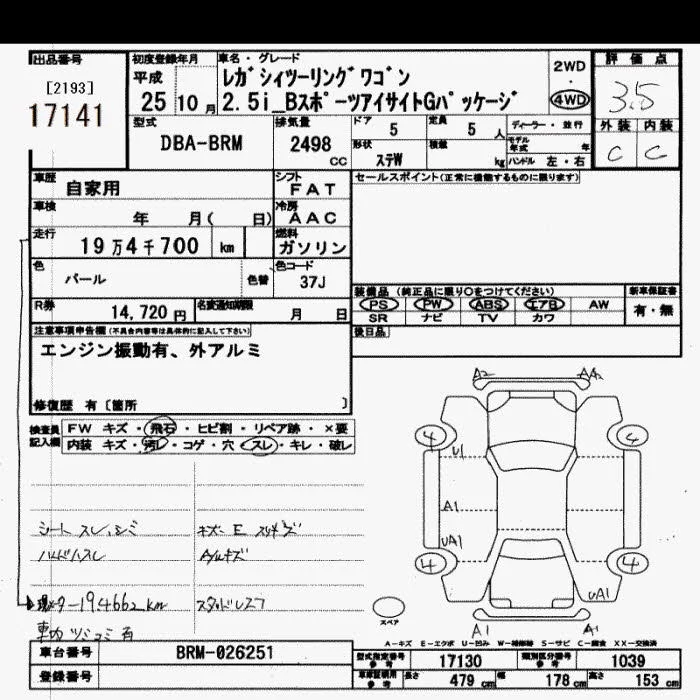 出品番号 初度登録年月 車名・グレード 2WD ・ 4WD 評価点
[2193] 平成 レガシィツーリングワゴン 3.5
17141 25年 10月 2.5i_BスポーツアイサイトGパッケージ
型式 排気量 ドア 5 定員 5人 ディーラー・並行 外装 内装
DBA-BRM 2498 CC 形状 ステW 積載 kg モデル年式 年 C C
ハンドル 左・右
車歴 自家用 シフト FAT セールスポイント(正常に機能するものに限ります)
車検 年 月( 日) 冷房 AAC
走行 19万4千700 km 燃料 ガソリン
色 パール 色替 色コード 37J
装備品 (純正品に限り○をつけてください) 新車保証書
R券 14,720円 名変通知期限 月 日 PS PW ABS エアB AW 有・無
SR ナビ TV カワ
注意事項申告欄(不具合内容等は具体的に記入して下さい) 後日品
エンジン振動有、外アルミ
修復歴 有 〔箇所 〕
検査員記入欄 FW キズ・飛石・ヒビ割・リペア跡・×要
内装 キズ・汚レ・コゲ・穴・スレ・キレ・破レ
A2 AA
4 4
U1
A1
UA1
4 4
UA1
A1 A1
シート スレ、シミ
ハンドルスレ
メーター194662km スタッドレス7
スペア
A-キズ E-エクボ U-凹み W-補修跡 S-サビ C-腐食 XX-交換済
車台番号 BRM-026251 型式指定番号 参考 17130 類別区分番号 参考 1039
登録番号 車庫証明用 参考 長さ 479 cm 幅 178 cm 高さ 153 cm